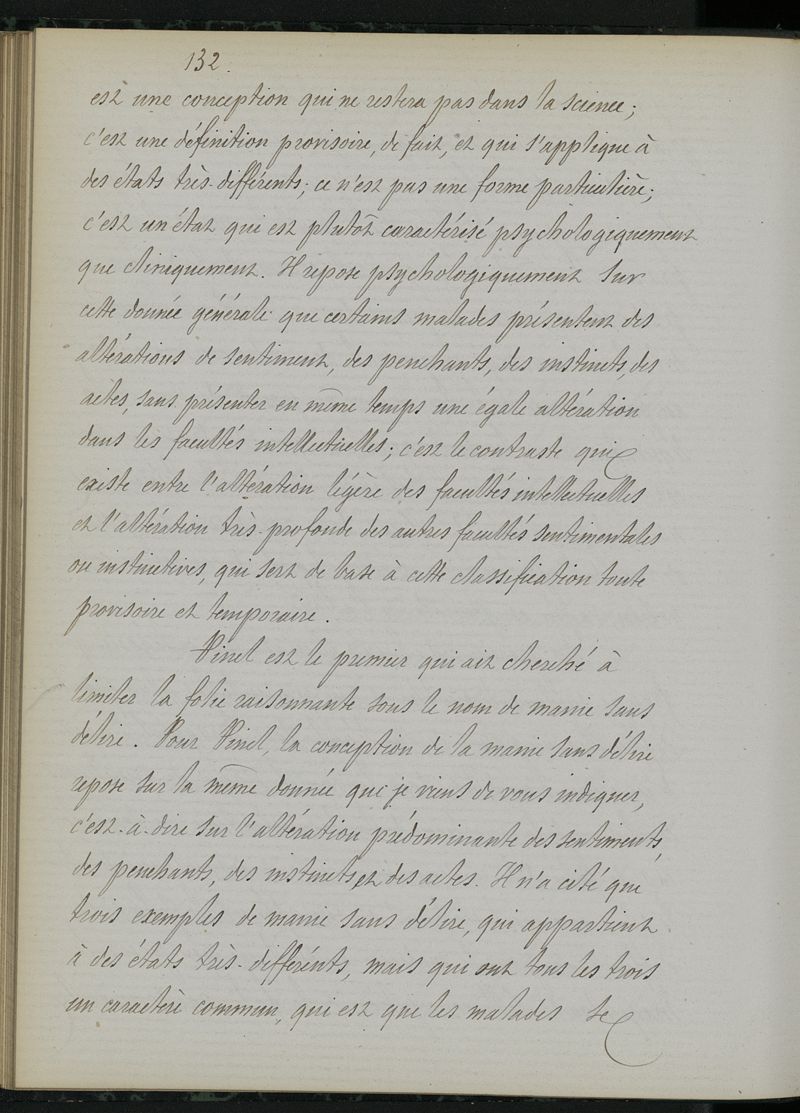 132.
est une conception qui ne restera pas dans la science;
c'est une définition provisoire, de fait, et qui s'applique à
des états très-différents; ce n'est pas une forme particulière;
c'est un état qui est plutôt caractérisé psychologiquement
que cliniquement. Il repose psychologiquement sur
cette donnée générale que certains malades présentent des
altérations de sentiment, des penchants, des instincts, des
actes, sans présenter en même temps une égale altération
dans les facultés intellectuelles; c'est le contraste qui
existe entre l'altération légère des facultés intellectuelles
et l'altération très-profonde des autres facultés sentimentales
ou instinctives, qui sert de base à cette classification toute
provisoire et temporaire.
Pinel est le premier qui ait cherché à
limiter la folie raisonnante sous le nom de manie sans
délire. Pour Pinel, la conception de la manie sans délire
repose sur la même donnée que je viens de vous indiquer,
c'est-à-dire sur l'altération prédominante des sentiments,
des penchants, des instincts et des actes. Il n'a cité que
trois exemples de manie sans délire, qui appartient
à des états très-différents, mais qui ont tous les trois
un caractère commun, qui est que les malades se